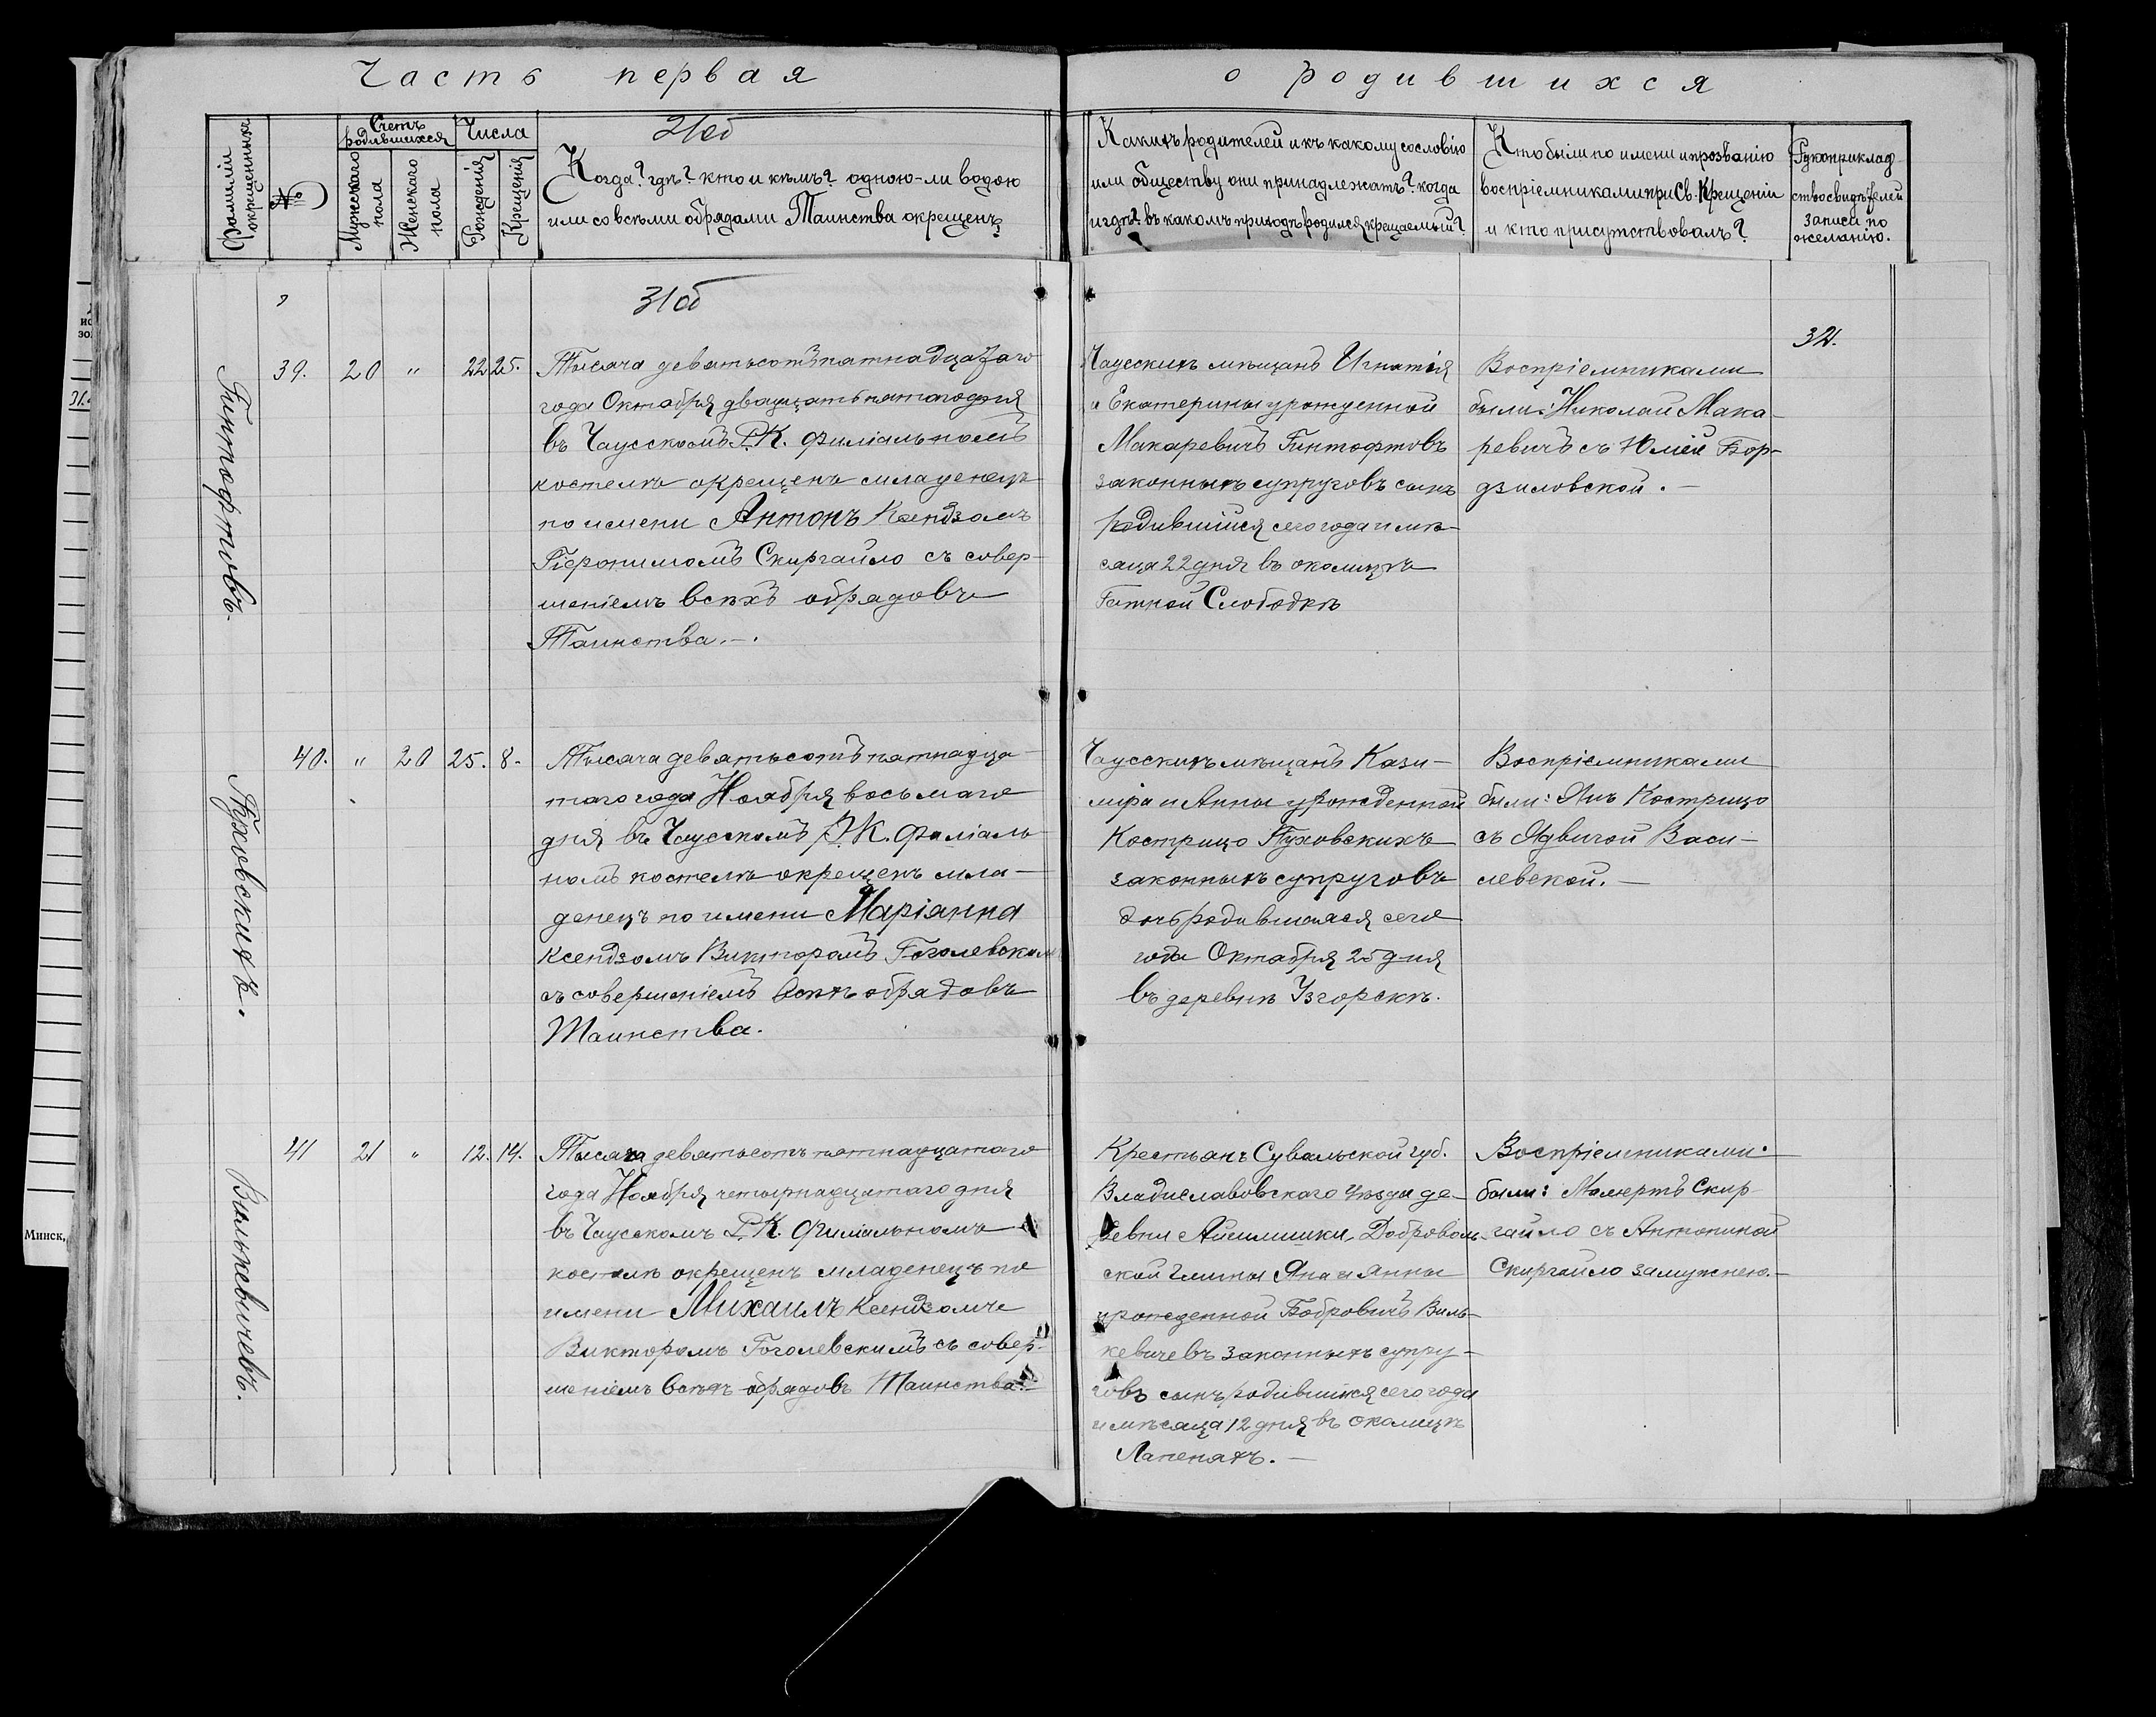 Часть первая о родившихся
Фамиліи окрещенныхъ
№
Счетъ родившихся
Мужскаго пола
Женскаго пола
Числа
Рожденія
Крещенія
21об
Когда? гдѣ? кто и кѣмъ? одною-ли водою
или со всѣми обрядами Таинства окрещенъ
Какихъ родителей и къ какому сословію
или обществу они принадлежатъ? когда
и гдѣ? въ какомъ приходѣ родился крещаемый?
Кто были по имени и прозванію
воспріемниками при Св. Крещеніи
и кто присутствовалъ?
Рукоприклад-
ство свидѣтелей
записи по
желанію.
31об
32.
Гинтофтовъ.
39. 20 " 22 25.
Тысяча девятьсотъ пятнадцатаго
года Октября двадцать пятаго дня
въ Чаусскомъ Р.К. филіальномъ
костелѣ окрещенъ младенецъ
по имени Антонъ Ксендзомъ
Гіеронимомъ Скиргайло съ совер-
шеніемъ всѣхъ обрядовъ
Таинства.-.
Чаусскихъ мѣщанъ Игнатія
и Екатерины урожденной
Макаревичъ Гинтофтовъ
законныхъ супруговъ сынъ
родившійся сего года и мѣ-
сяца 22 дня въ околицѣ
Гатной Слободкѣ
Воспріемниками
были: Николай Мака-
ревичъ съ Юліей Бор-
дзиловской.-
Пуховскихъ.
40. " 20 25. 8.
Тысяча девятьсотъ пятнадца-
таго года Ноября восьмаго
дня въ Чаусскомъ Р.К. филіаль-
номъ костелѣ окрещенъ мла-
денецъ по имени Маріанна
Ксендзомъ Викторомъ Гоголевскимъ
съ совершеніемъ всѣхъ обрядовъ
Таинства.
Чаусскихъ мѣщанъ Кази-
міра и Анны урожденной
Кострицо Пуховскихъ
законныхъ супруговъ
дочь родившаяся сего
года Октября 25 дня
въ деревнѣ Узгорскѣ.
Воспріемниками
были: Янъ Кострицо
съ Ядвигой Васи-
левской.-
Вилькевичевъ.
41 21 " 12. 14.
Тысяча девятьсотъ пятнадцатаго
года Ноября четырнадцатаго дня
въ Чаусскомъ Р.К. Филіальномъ
костелѣ окрещенъ младенецъ по
имени Михаилъ Ксендзомъ
Викторомъ Гоголевскимъ съ совер-
шеніемъ всѣхъ обрядовъ Таинства.-
Крестьянъ Сувальской губ.
Владиславовскаго уѣзда де-
ревни Доброволь-
ской гмины Яна и Анны
урожденной Бобровичъ Виль-
кевичевъ законныхъ супру-
говъ сынъ родившійся сего года
и мѣсяца 12 дня въ околицѣ
Лапеняхъ.-
Воспріемниками
были: Скир-
гайло съ Антониной
Скиргайло замужнею.-
Минск,